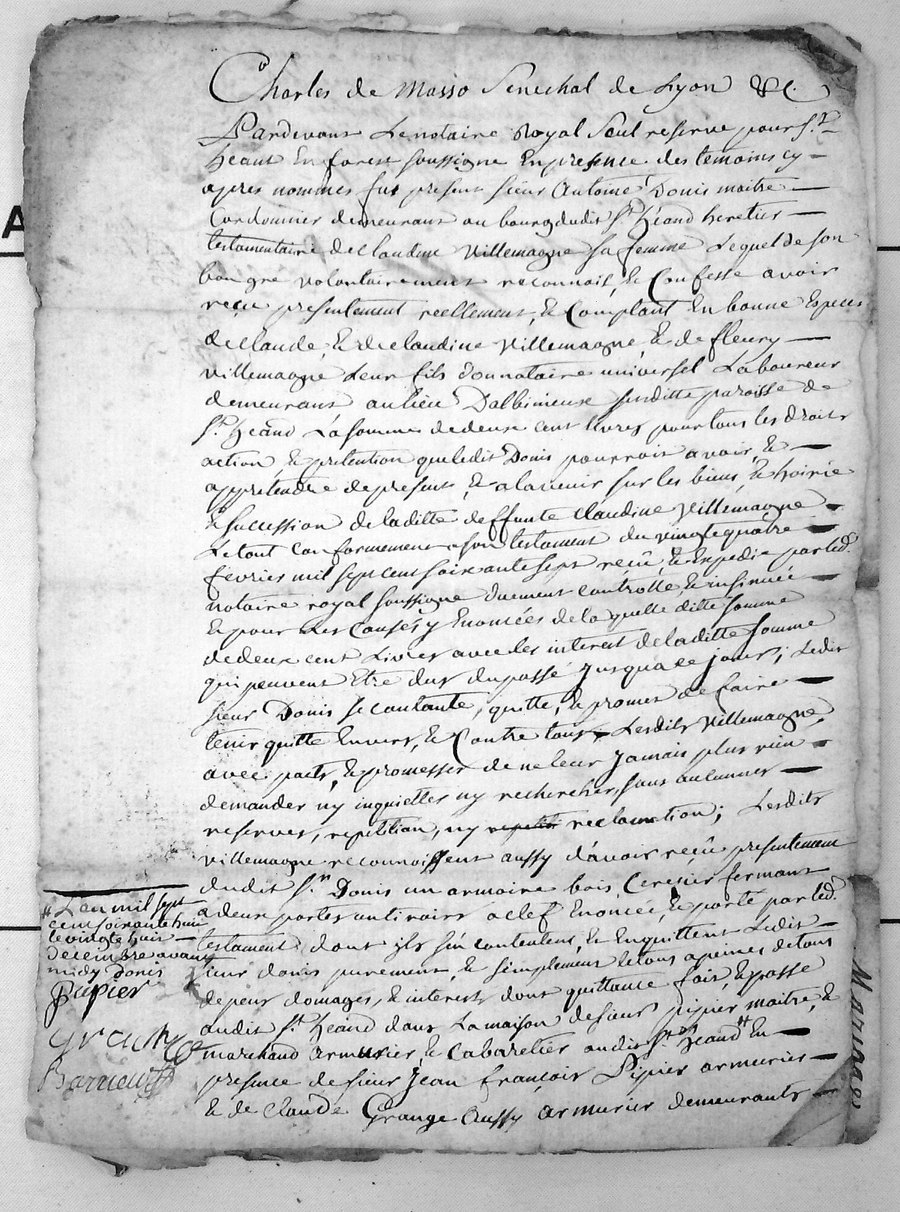 Charles de Masso Senechal de Lyon &c.
Pardevant Le notaire Royal Seul reservé pour St.
heant En forest soussigné En presence des temoins cy
apres nommés fut present sieur Antoine Donis maitre
Cordonnier demeurant au bourg dudit St. héand heretier
testamentaire de Claudine Villemagne sa femme Lequel de son
bon gre volontairement reconnoit, & Confesse avoir
reçu presentement reellement, & Comptant En bonne Especes
de Claude, & de Claudine Villemagne, & de fleury
Villemagne Leur fils donnataire universel Laboureur
demeurant au lieu Dalbinieuse susditte paroisse de
St. héand La somme de deux cent livres pour tous les droits
action & pretention que ledit Donis pourroit avoir, &
appretendre de present, & a lavenir sur les biens, & hoirie
& succession de laditte deffunte Claudine Villemagne
Le tout Conformement a son testament du vingt quatre
fevrier mil sept cent soixante sept reçu, & Expedié par led.
notaire royal soussigné duement controllé, & insinué
& pour Les Causes y Enoncées de la quelle ditte somme
de deux cent Livres avec les interest de laditte somme
qui peuvent Etre dus du passé Jusqua ce jour; Ledit
sieur Donis se contante, quitte, & promet de faire
tenir quitte Envers, & Contre tous Lesdits Villemagne,
avec pacte, & promesses de ne leur Jamais plus rien
demander ny inquietter ny rechercher, sans aucunnes
reserves, repetition, ny reclamation; Lesdits
Villemagne reconnoissent aussy davoir reçu presentement
dudit Sr. Donis un armoire bois Cerisier fermant
a deux portes un tiroirs a clef Enoncée, & porté par led.
testament dont ils sen contentent, & Enquittent Ledit
sieur donis purement, & simplement le tous a peines de tous
depens domages, & interests dont quittance fait, & passé
audit St. héand dans La maison de sieur pipier maitre, &
marchand armurier & Cabaretier audit St. héand # En
presence de sieur Jean françois Pipier armurier
& de Claude Grange Aussy armurier demeurants
# L'an mil sept
cent soixante huit
le vingt huit
decembre avant
midy Donis
Pipier
Grange
Matinas